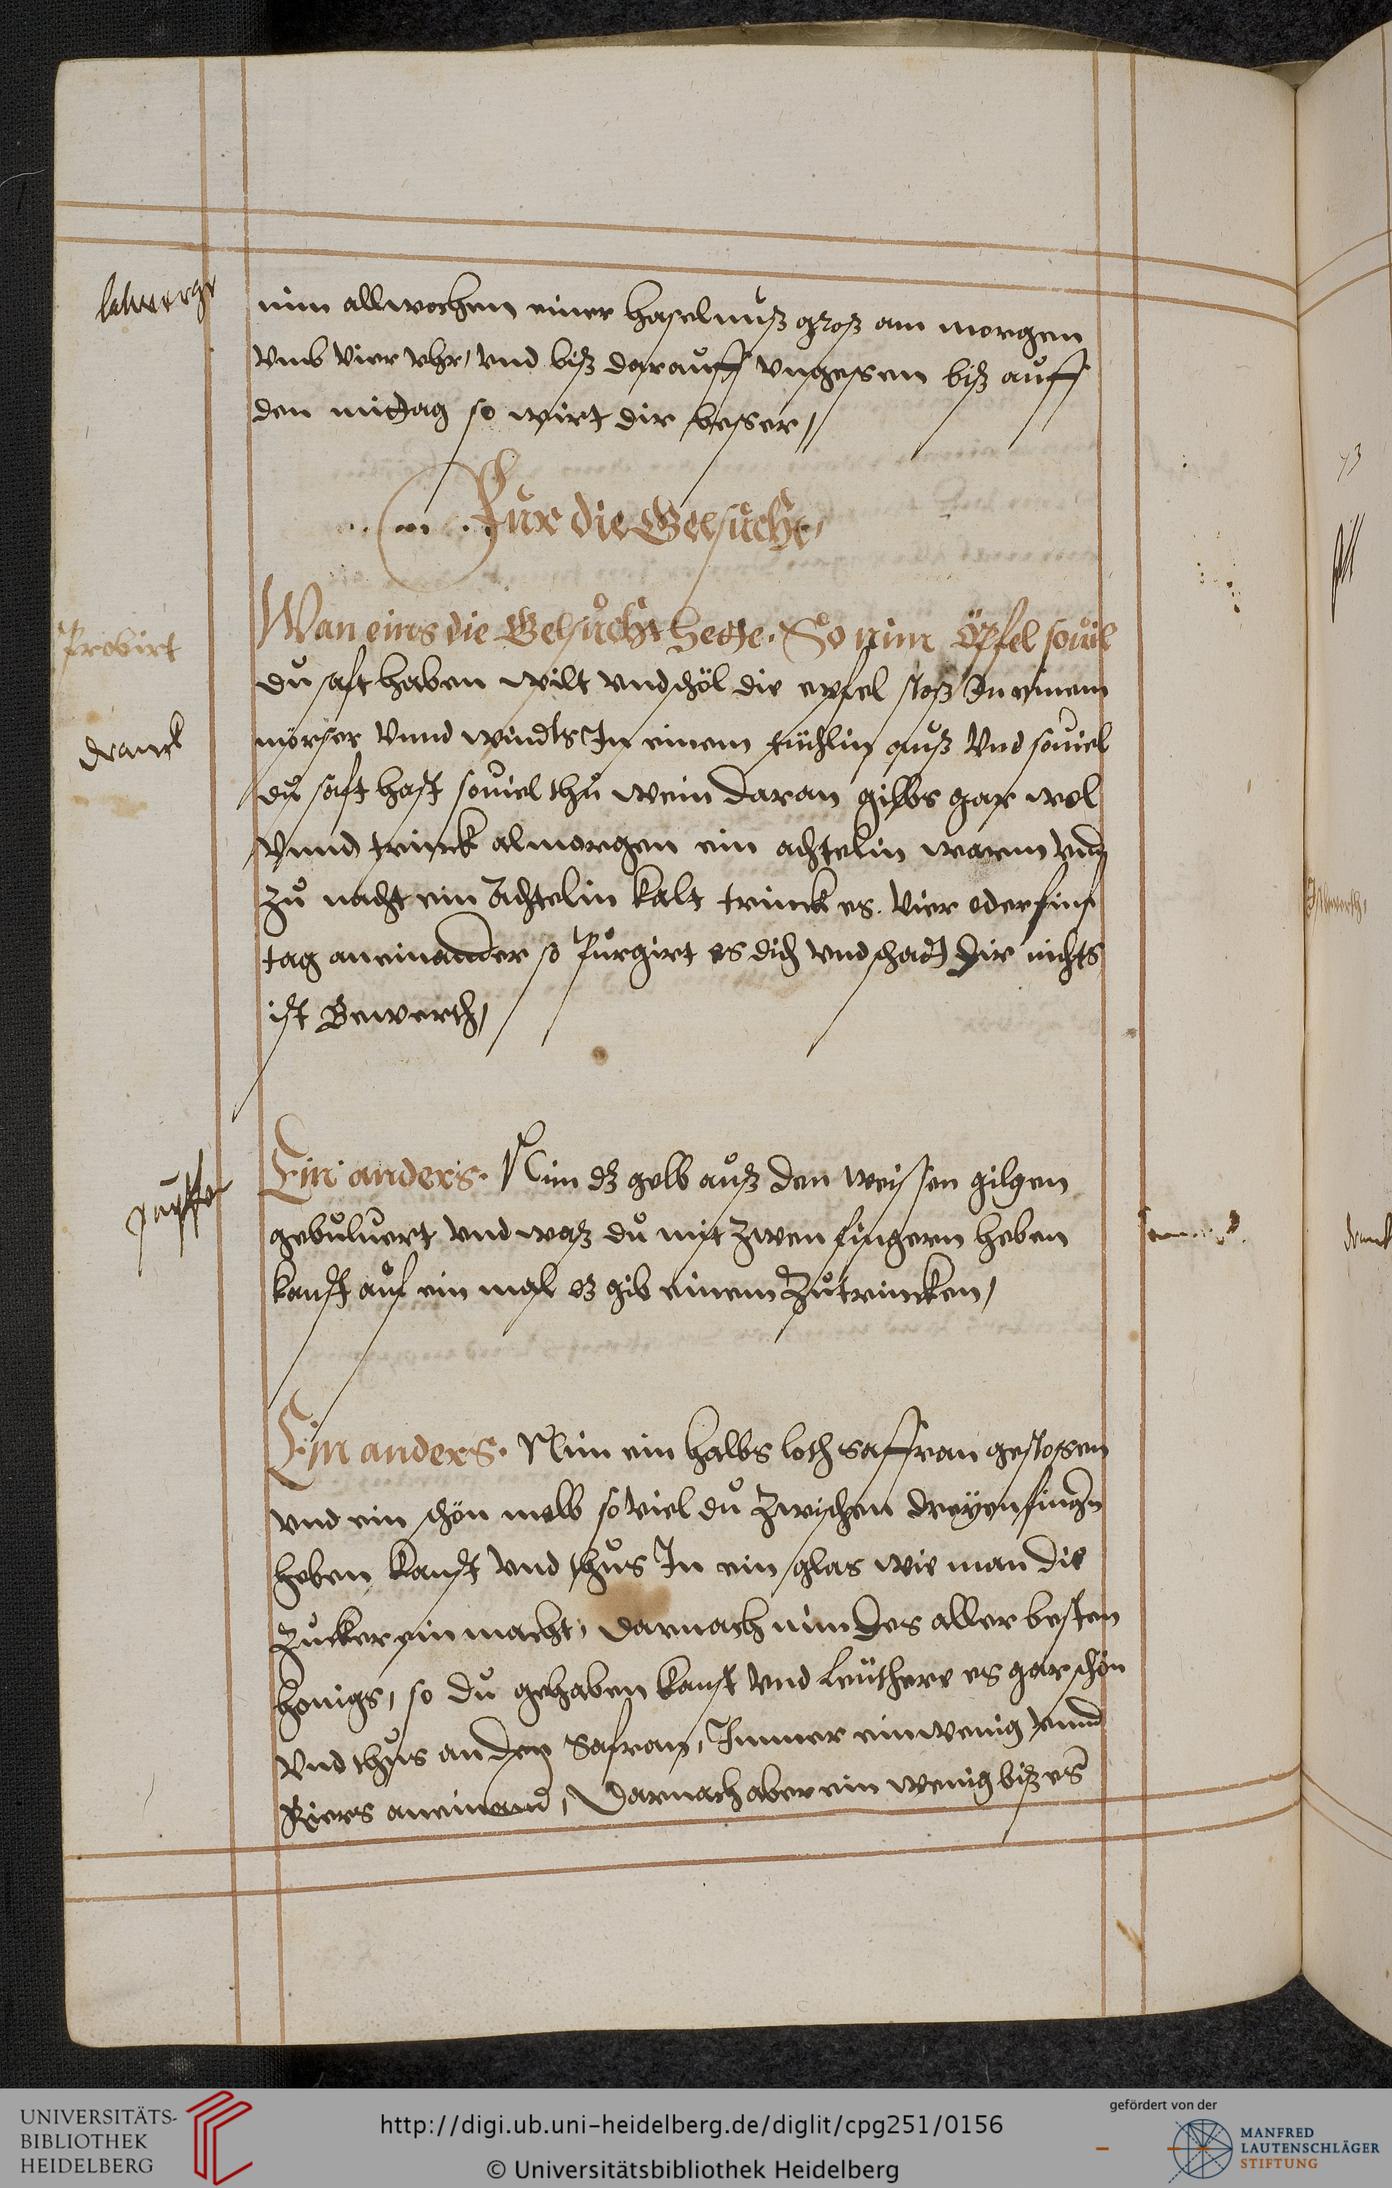 latwerge
nim allwochen einer haselnuß groß am morgen
vmb vier vhr, vnd biß darauff vngessen biß auff
den mitdag so wirt dir besser,
Fur die Gelsucht,
Probirt
Wan eims die Gelsucht hette. So nim Öpfel souil
du saft haben wilt vnd schöl die epfel stoß In einem
dranck
mörser Vnnd windts In einem tüchlin auß Vnd souiel
du saft hast souiel thu wein daran gilbs gar wol
Vnnd trinck almorgen ein achtelin warm vnd
zu nacht ein Achtelin kalt trinck es. vier oder finf
tag aneinander so Purgirt es dich vnd schadt dir nichts
ist Bewerth,
Ein anders. Nim dz gelb auß den weissen gilgen
gebuluert vnd waß du mit zwen fingern heben
kanst auf ein mal dz gib einem zutrincken,
Ein anders. Nim ein halbs loth saffran gestossen
vnd ein schön melb so viel du zwischen dreyen fingern
heben kanst vnd thus In ein glas wie man die
zucker einmacht, darnach nim des aller besten
honigs, so du gehaben kanst vnd leuthere es gar schön
vnd thus an den Safran, Immer ein wenig vnnd
Riers aneinand, Darnach aber ein wenig biß es
73
dranck
UNIVERSITÄTS-
BIBLIOTHEK
HEIDELBERG
http://digi.ub.uni-heidelberg.de/diglit/cpg251/0156
© Universitätsbibliothek Heidelberg
gefördert von der
MANFRED
LAUTENSCHLÄGER
STIFTUNG